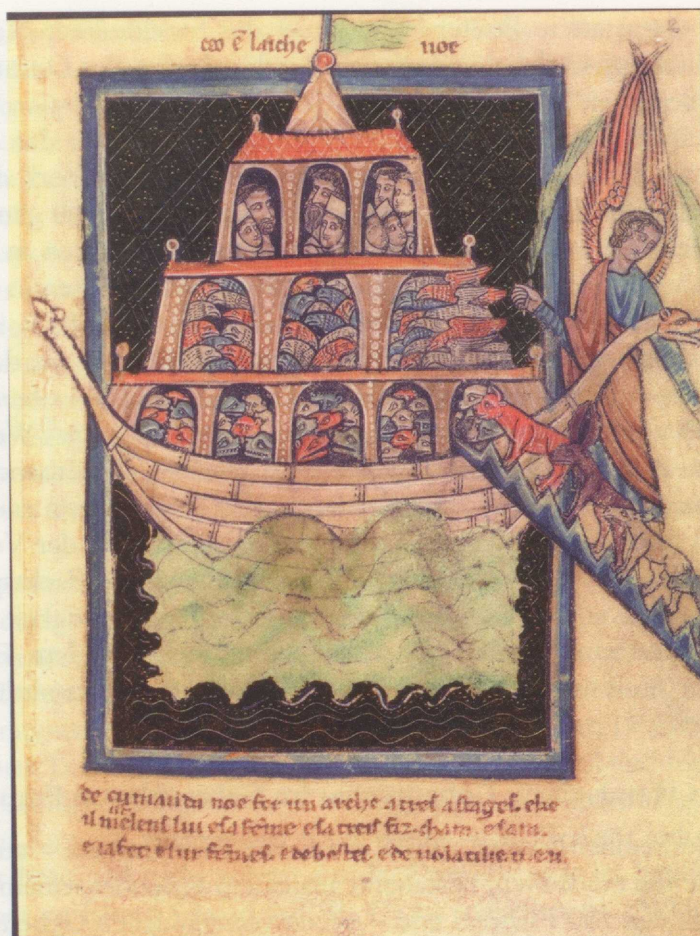 ceo ē larche noe
de cumanda noe fer un arche a treſ aſtageſ. e ke
il meiſt enſ lui e ſa feme e ſa treiſ fiz. cham. e ſam.
e iafet e lur femeſ. e de beſteſ e de uolatilie